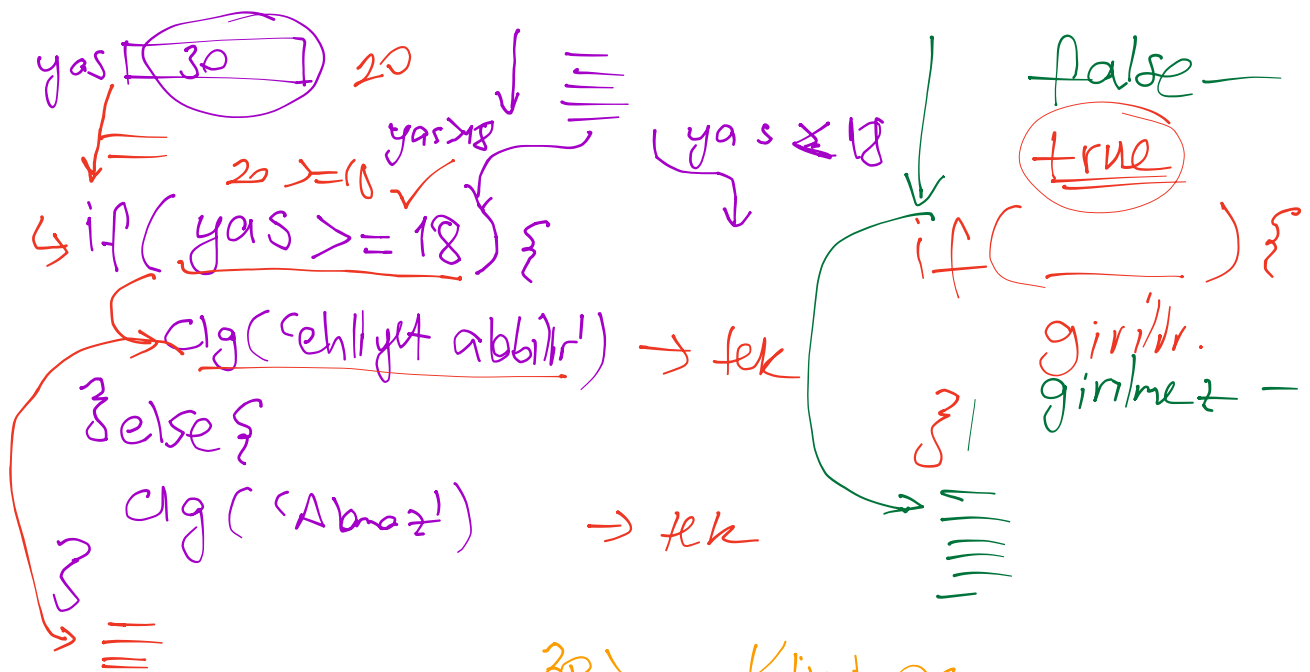 yas 30 20
yas>18
yas < 18
20 >= 18 ✓
if( yas >= 18 ){
clg('ehliyet alabilir') → tek
}else{
clg('Alamaz') → tek
}
false
true
if( ){
girilir.
girilmez
}